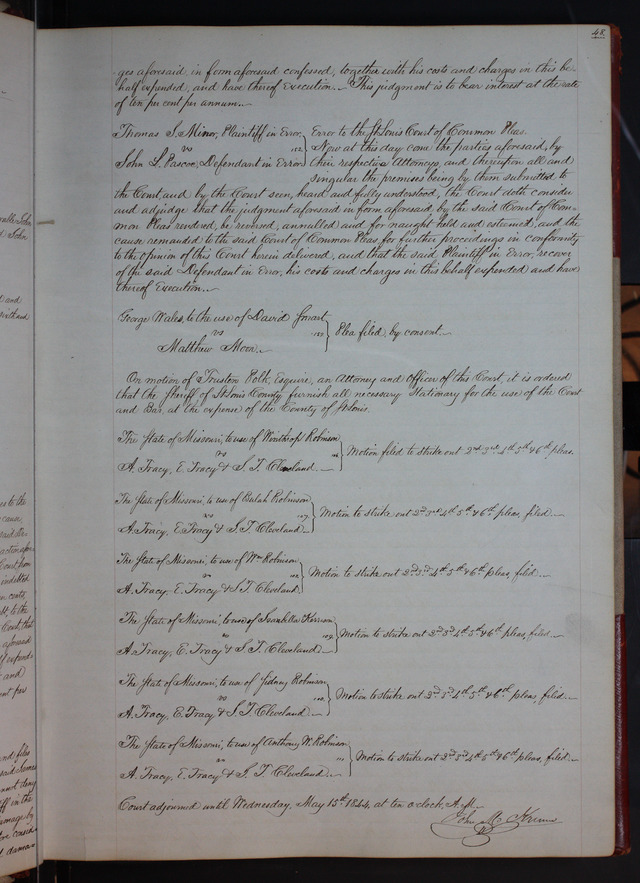 48
ges aforesaid in form aforesaid confessed, together with his costs and charges in this be-
half expended, and have thereof Execution. This judgment is to bear interest at the rate
of ten per cent per annum.
Thomas S. Minor, Plaintiff in Error,
vs
John L. Pascoe, Defendant in Error
Error to the St Louis Court of Common Pleas.
Now at this day come the parties aforesaid, by
their respective Attorneys, and thereupon all and
singular the premises being by them submitted to
the Court, and by the Court seen, heard and fully understood, the Court doth consider
and adjudge that the judgment aforesaid in form aforesaid, by the said Court of Com-
mon Pleas rendered, be reversed, annulled and for naught held and esteemed, and the
cause remanded to the said Court of Common Pleas for further proceedings in conformity
to the opinion of this Court herein delivered, and that the said Plaintiff in Error, recover
of the said Defendant in Error, his costs and charges in this behalf expended and have
thereof Execution.
George Wales, to the use of David
vs
Matthew Moon.
Plea filed, by consent.
On motion of Truston Polk, Esquire, an Attorney and Officer of this Court, it is ordered
that the Sheriff of St Louis County furnish all necessary Stationary for the use of the Court
and Bar, at the expense of the County of St Louis.
The State of Missouri, to use of Winthrop Robinson
vs
A. Tracy, E. Tracy & S. T. Cleveland.
Motion filed to strike out 2nd 3rd 4th 5th & 6th pleas.
The State of Missouri, to use of Bulah Robinson
vs 107
A. Tracy, E. Tracy & S. T. Cleveland.
Motion to strike out 2d 3d 4th 5th & 6th pleas, filed.
The State of Missouri, to use of Wm Robinson
vs
A. Tracy, E. Tracy & S. T. Cleveland.
Motion to strike out 2d 3d 4th 5th & 6th pleas, filed.
The State of Missouri, to use of Isabella Kerrison
vs 109
A. Tracy, E. Tracy & S. T. Cleveland.
Motion to strike out 2d 3d 4th 5th & 6th pleas, filed.
The State of Missouri, to use of Sidney Robinson
vs
A. Tracy, E. Tracy & S. T. Cleveland.
Motion to strike out 2d 3d 4th 5th & 6th pleas, filed.
The State of Missouri, to use of Anthony W. Robinson
vs 111
A. Tracy, E. Tracy & S. T. Cleveland.
Motion to strike out 2d 3d 4th 5th & 6th pleas, filed.
Court adjourned until Wednesday, May 15th 1844, at ten o'clock, A.M.
John M. Krum